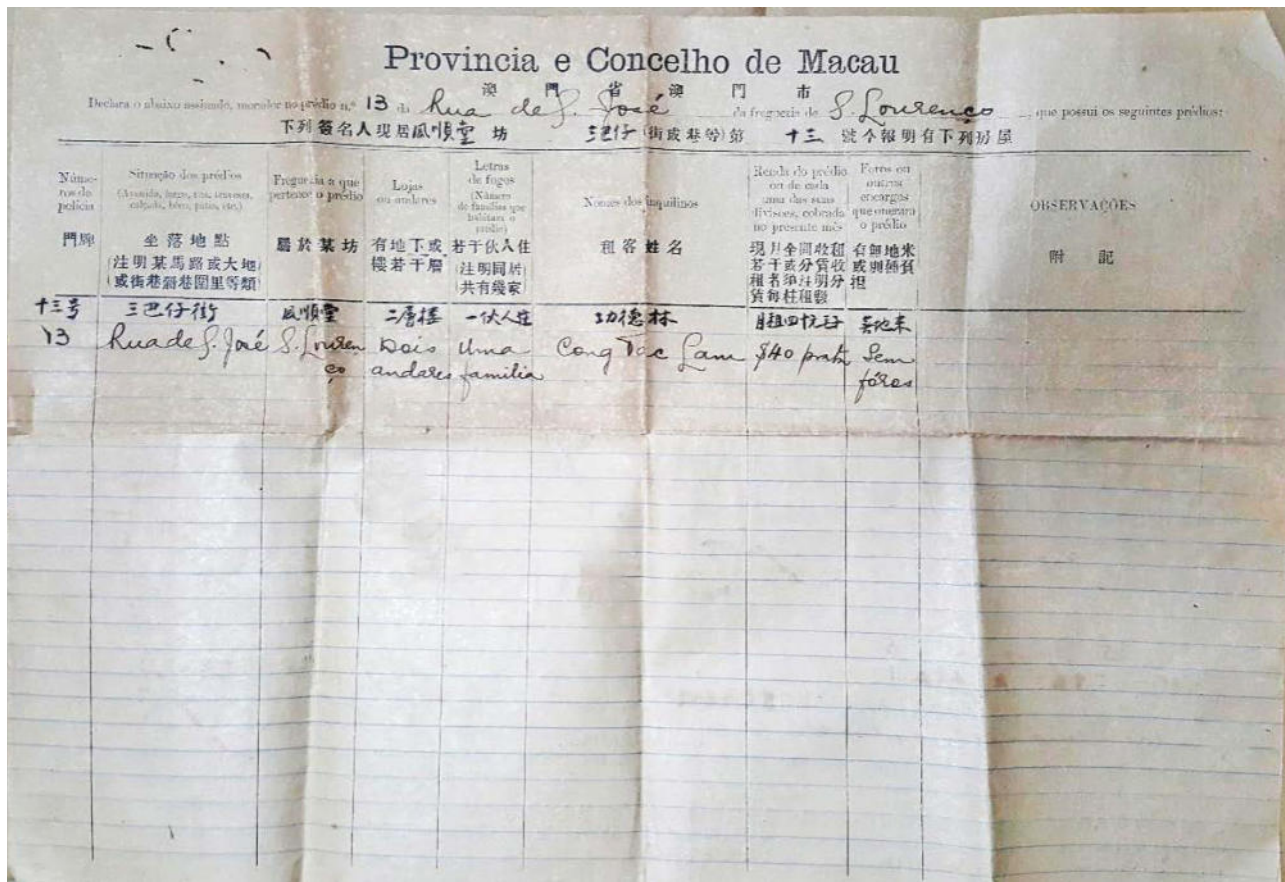 Provincia e Concelho de Macau
澳 門 省 澳 門 市
Declara o abaixo assinado, morador no prédio n.º 13 da Rua de S. José da freguezia de S. Lourenço, que possui os seguintes prédios:
下列簽名人現居風順堂 坊 三巴仔(街或巷等)第 十三 號今報明有下列房屋
Núme-
ros de
policia
門牌
Situação dos prédios
(Avenida, largo, rua, travessa,
calçada, bêco, páteo, etc.)
坐落地點
(注明某馬路或大地
或街巷斜巷圍里等類)
Freguezia a que
pertence o prédio
屬於某坊
Lojas
ou andares
有地下或
樓若干層
Letras
de fogos
(Número
de famílias que
habitam o
prédio)
若干伙人住
(注明同居
共有幾家)
Nomes dos inquilinos
租客姓名
Renda do prédio
ou de cada
uma das suas
divisões, cobrada
no presente mês
現月全間收租
若干或分賃收
租者須注明分
賃每柱租銀
Foros ou
outros
encargos
que oneram
o prédio
有無地米
或別樣負
担
OBSERVAÇÕES
附 記
十三号 三巴仔街 風順堂 二層樓 一伙人住 功德林
13 Rua de S. José S. Louren
ço Dois
andares Uma
familia Cong Tac Lam $40 prata Sem
fóros